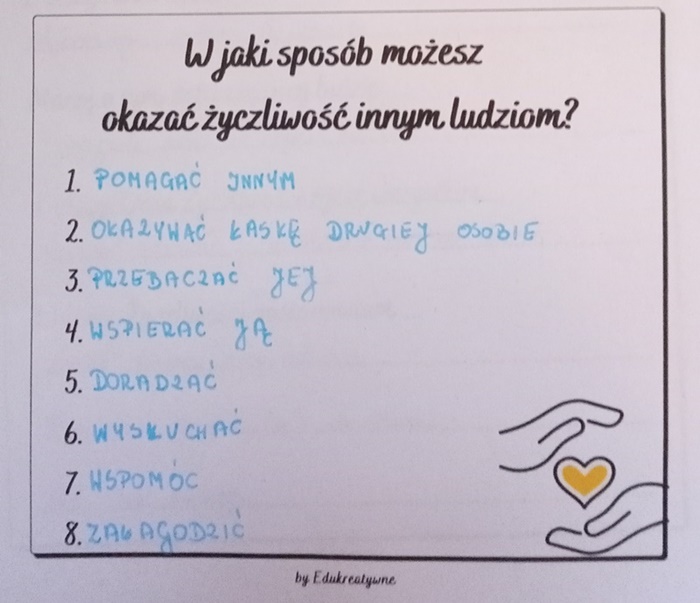 W jaki sposób możesz
okazać życzliwość innym ludziom?
1. POMAGAĆ INNYM
2. OKAZYWAĆ ŁASKĘ DRUGIEJ OSOBIE
3. PRZEBACZAĆ JEJ
4. WSPIERAĆ JĄ
5. DORADZAĆ
6. WYSŁUCHAĆ
7. WSPOMÓC
8. ZAŁAGODZIĆ
by Edukreatywne